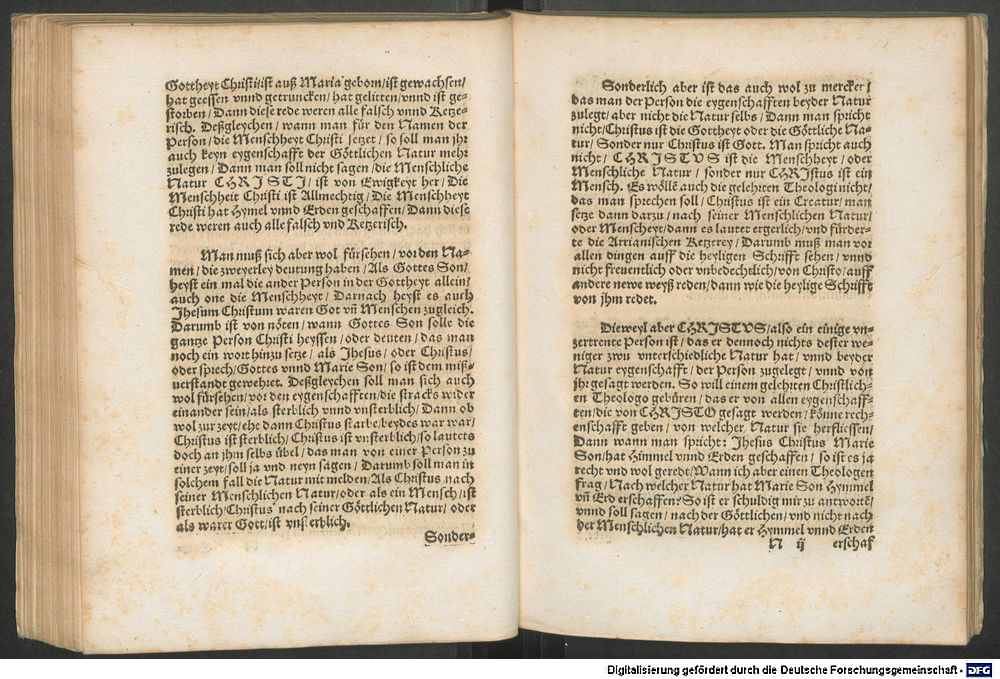 Gottheyt Christi/ist auß Maria geborn/ist gewachsen/
hat geessen vnnd getruncken/hat gelitten/vnnd ist ge-
storben/Dann diese rede weren alle falsch vnnd Ketze-
risch. Deßgleychen/wann man für den Namen der
Person/die Menschheyt Christi setzet/so soll man jhr
auch keyn eygenschafft der Göttlichen Natur mehr
zulegen/Dann man soll nicht sagen/die Menschliche
Natur CHRISTI/ist von Ewigkeyt her/Die
Menschheit Christi ist Allmechtig/Die Menschheyt
Christi hat Hymel vnnd Erden geschaffen/Dann diese
rede weren auch alle falsch vnd Ketzerisch.
Man muß sich aber wol fürsehen/vor den Na-
men/die zweyerley deutung haben/Als Gottes Son/
heyst ein mal die ander Person in der Gottheyt allein/
auch one die Menschheyt/Darnach heyst es auch
Jhesum Christum waren Got vñ Menschen zugleich.
Darumb ist von nöten/wann Gottes Son solle die
gantze Person Christi heyssen/oder deuten/das man
noch ein wort hinzu setze/als Jhesus/oder Christus/
oder sprech/Gottes vnnd Marie Son/so ist dem miß-
uerstandt gewehret. Deßgleychen soll man sich auch
wol fürsehen/vor den eygenschafften/die stracks wider
einander sein/als sterblich vnnd vnsterblich/Dann ob
wol zur zeyt/ehe dann Christus starbe/beydes war war/
Christus ist sterblich/Christus ist vnsterblich/so lautets
doch an jhm selbs übel/das man von einer Person zu
einer zeyt/soll ja vnd neyn sagen/Darumb soll man in
solchem fall die Natur mit melden/Als Christus nach
seiner Menschlichen Natur/oder als ein Mensch/ist
sterblich/Christus nach seiner Göttlichen Natur/oder
als warer Gott/ist vnsterblich.
Sonder-
Sonderlich aber ist das auch wol zu mercken/
das man der Person die eygenschafften beyder Natur
zulegt/aber nicht die Natur selbs/Dann man spricht
nicht/Christus ist die Gottheyt oder die Göttliche Na-
tur/Sonder nur Christus ist Gott. Man spricht auch
nicht/CHRISTVS ist die Menschheyt/oder
Menschliche Natur/sonder nur CHRIstus ist ein
Mensch. Es wölle auch die gelehrten Theologi nicht/
das man sprechen soll/Christus ist ein Creatur/man
setze dann darzu/nach seiner Menschlichen Natur/
oder Menscheyt/dann es lautet ergerlich/vnd fürder-
te die Arrianischen Ketzerey/Darumb muß man vor
allen dingen auff die heyligen Schrifft sehen/vnnd
nicht freuentlich oder vnbedechtlich/von Christo/auff
andere newe weyß reden/dann wie die heylige Schrifft
von jhm redet.
Dieweyl aber CHRISTVS/also ein einige vn-
zertrente Person ist/das er dennoch nichts dester we-
niger zwu vnterschiedliche Natur hat/vnnd beyder
Natur eygenschafft/der Person zugelegt/vnnd von
jhr gesagt werden. So will einem gelehrten Christlich-
en Theologo gebüren/das er von allen eygenschaff-
ten/die von CHRISTO gesagt werden/könne rech-
enschafft geben/von welcher Natur sie herfliessen/
Dann wann man spricht: Jhesus Christus Marie
Son/hat Himmel vnnd Erden geschaffen/so ist es ja
recht vnd wol geredt/Wann ich aber einen Theologen
frag/Nach welcher Natur hat Marie Son Hymmel
vñ Erd erschaffen? So ist er schuldig mir zu antwortē/
vnnd soll sagen/nach der Göttlichen/vnd nicht nach
der Menschlichen Natur/hat er Hymmel vnnd Erden
N ij erschaf
Digitalisierung gefördert durch die Deutsche Forschungsgemeinschaft - DFG